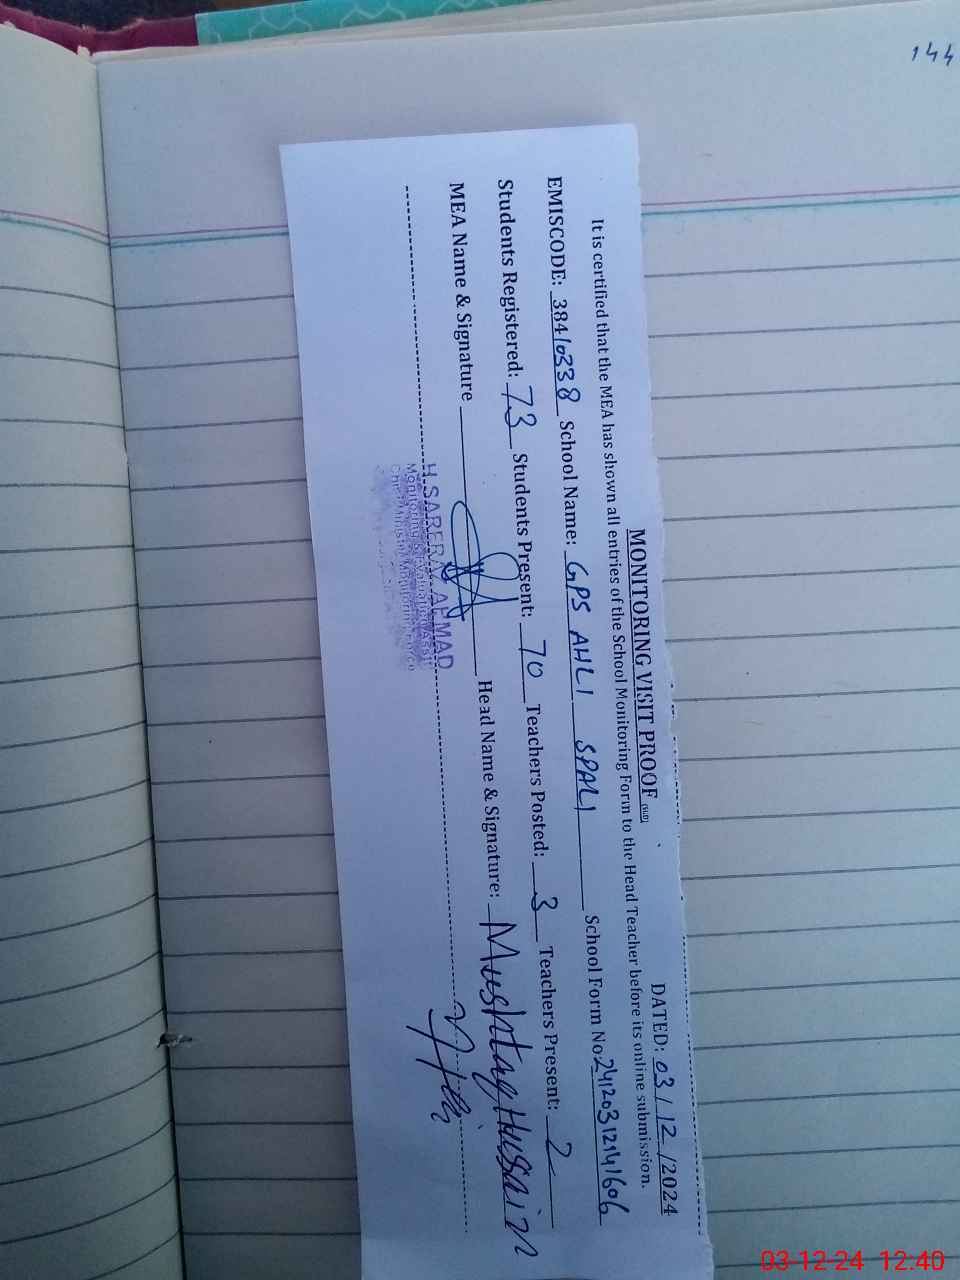 144
MONITORING VISIT PROOF
DATED: 03/12/2024
It is certified that the MEA has shown all entries of the School Monitoring Form to the Head Teacher before its online submission.
EMISCODE: 38410338 School Name: GPS AHLI SPALI School Form No: 24120312141606
Students Registered: 73 Students Present: 70 Teachers Posted: 3 Teachers Present: 2
MEA Name & Signature Head Name & Signature: Mushtaq Hussain
AHMAD
Monitoring & Evaluation
03-12-24 12:40